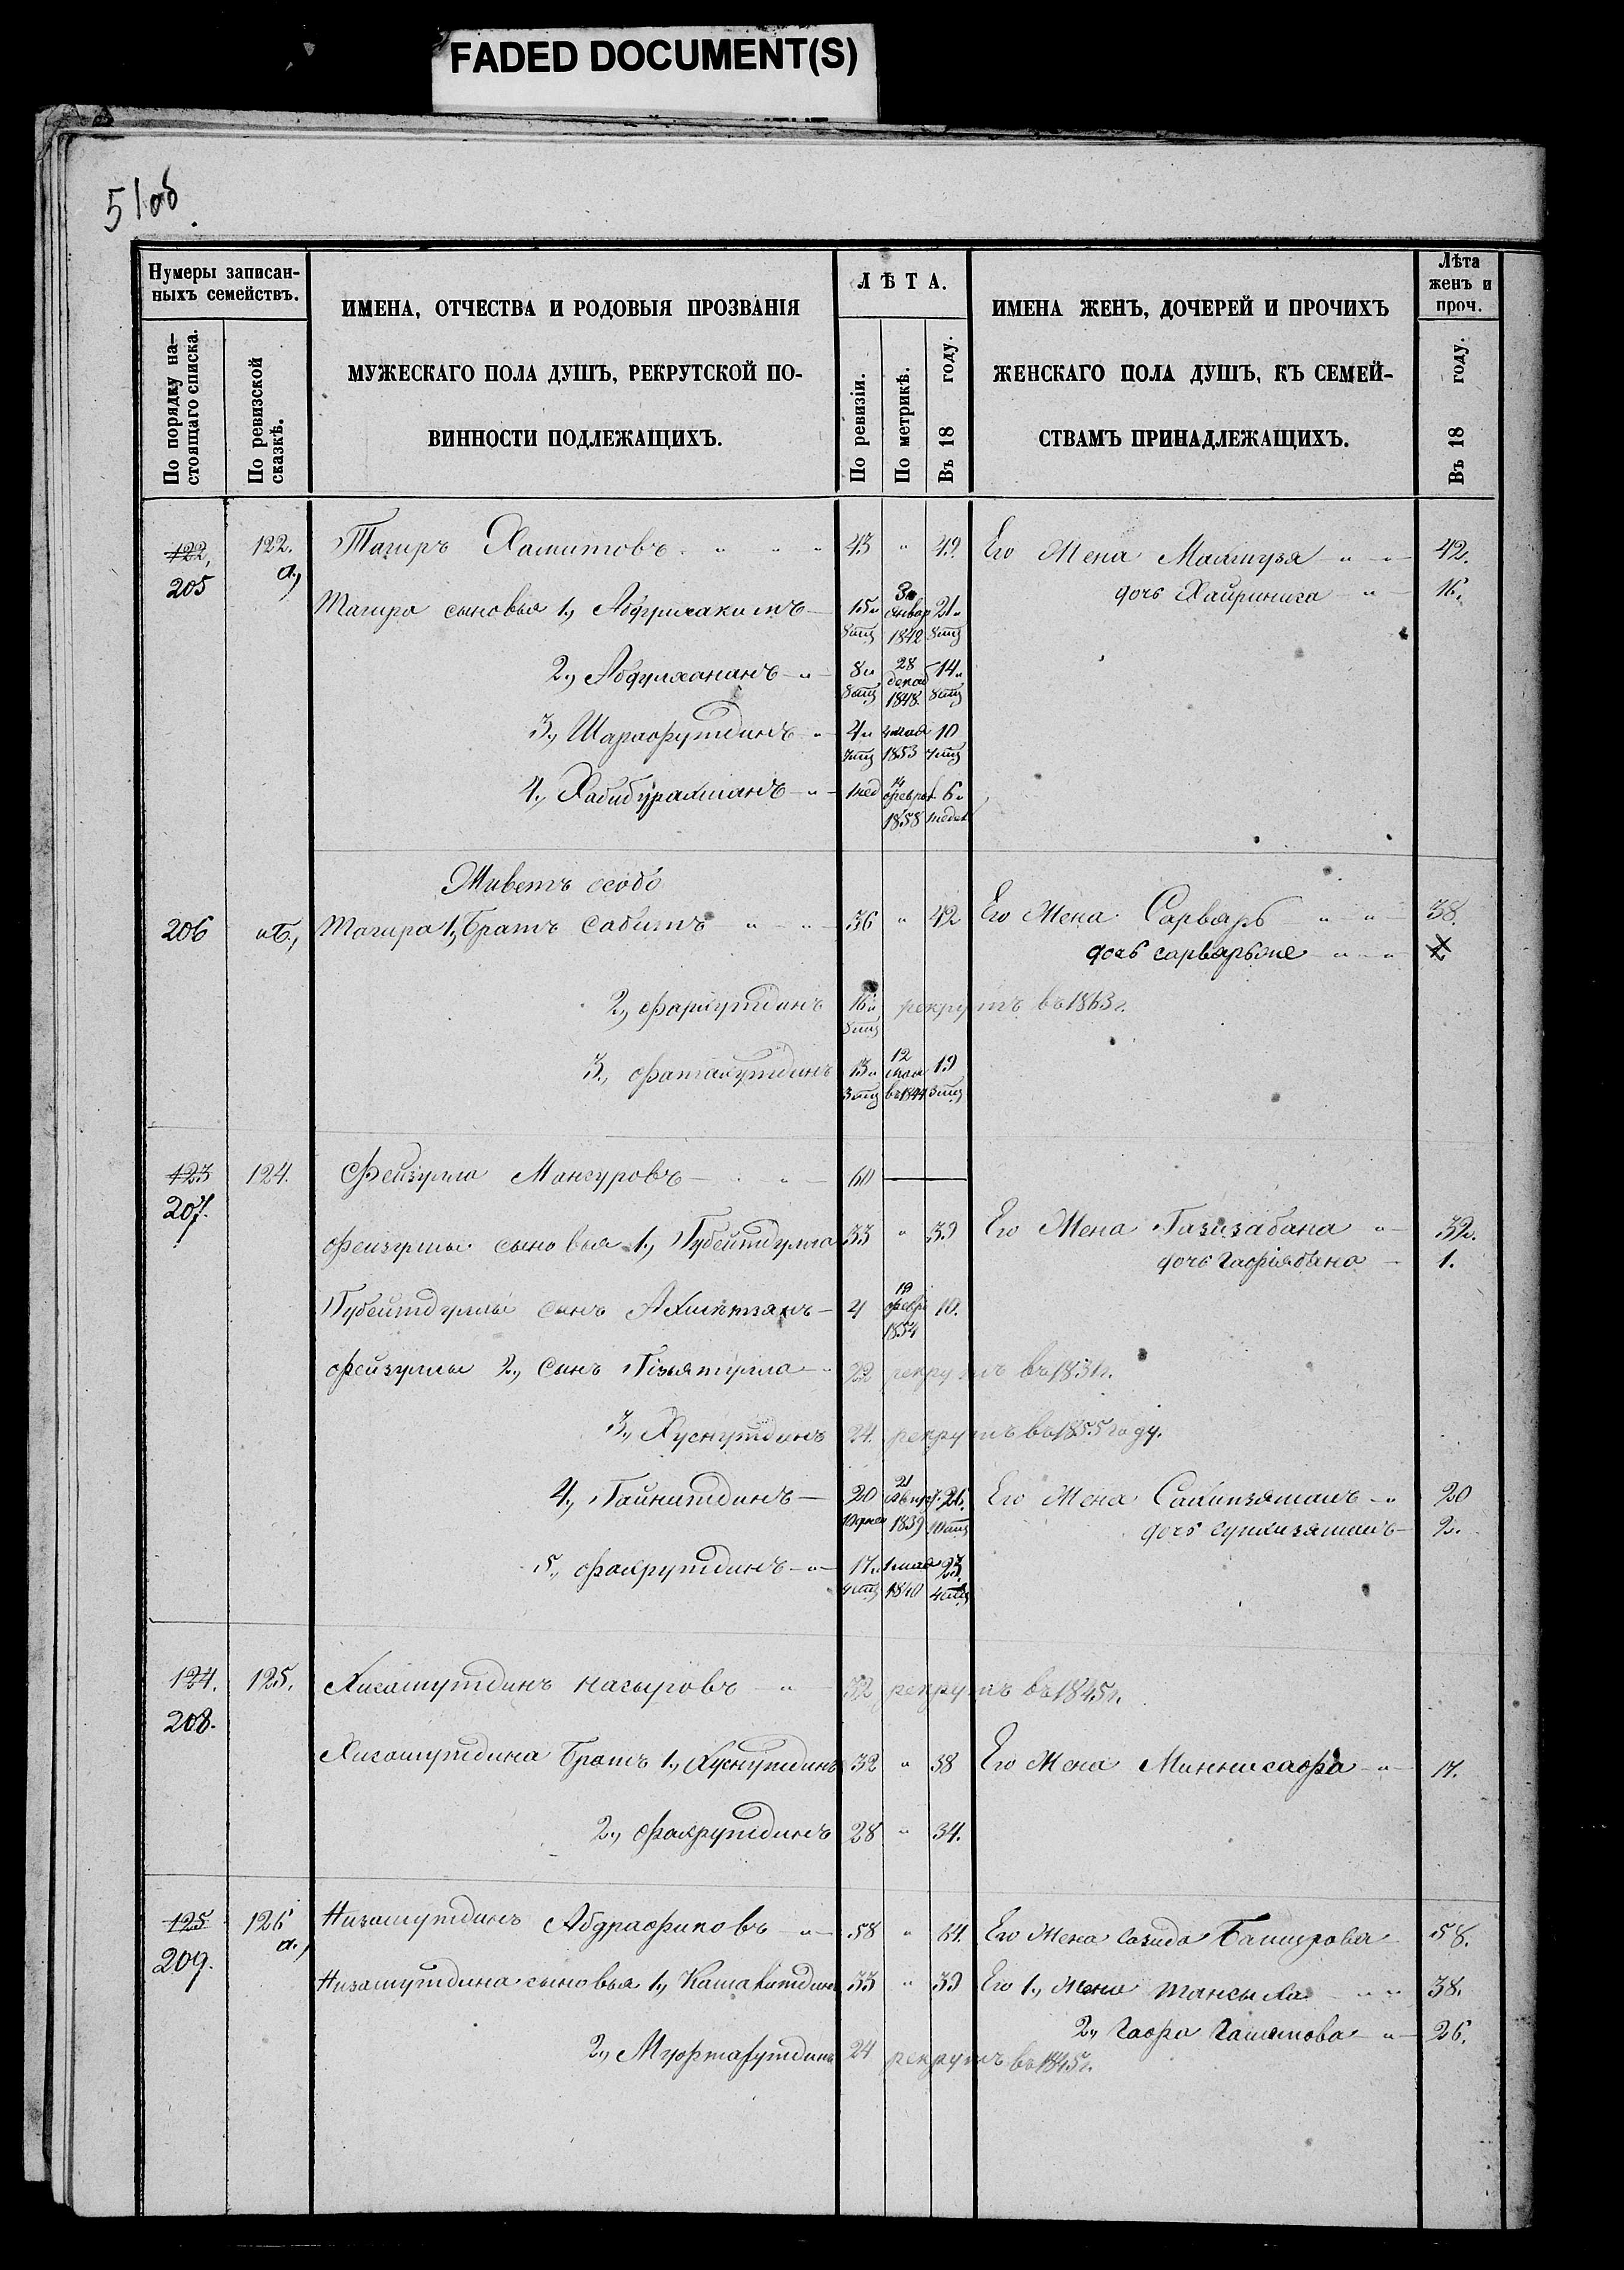 FADED DOCUMENT(S)
51об.
Нумеры записан-
ныхъ семействъ.
По порядку на-
стоящаго списка.
По ревизской
сказкѣ.
ИМЕНА, ОТЧЕСТВА И РОДОВЫЯ ПРОЗВАНІЯ
МУЖЕСКАГО ПОЛА ДУШЪ, РЕКРУТСКОЙ ПО-
ВИННОСТИ ПОДЛЕЖАЩИХЪ.
ЛѢТА.
По ревизіи.
По метрикѣ.
Въ 18 году.
ИМЕНА ЖЕНЪ, ДОЧЕРЕЙ И ПРОЧИХЪ
ЖЕНСКАГО ПОЛА ДУШЪ, КЪ СЕМЕЙ-
СТВАМЪ ПРИНАДЛЕЖАЩИХЪ.
Лѣта
женъ и
проч.
Въ 18 году.
122, 122. Тагиръ Хамитовъ 43 " 49. Его Жена 42.
205 а, дочь Хайриниса 16.
Тагира сыновья 1, Абдулхакимъ 15 3 январ 1842 21
8 мц 8 мц
2, Абдулхананъ 8 28 декаб 1848. 14
8 мц 8 мц
3, Шарафутдинъ 4 4 мая 1853 10
7 мц 7 мц
4, Хабибурахманъ 1 нед 14 феврал 1858 6
Живетъ особо
206 Б, Тагира 1, Братъ Сабитъ 36 " 42 Его Жена Сарваръ 38.
дочь
2, Фархутдинъ 16 рекрутъ въ 1863 г.
8 мц
3, Фатахутдинъ 13 12 мая въ 1844 19
3 мц 3 мц
123 124. Фейзулла Мансуровъ 60
207.
Фейзуллы сыновья 1, Губейтдулла 33 " 39 Его Жена Газизабана 32.
дочь Гафіябана 1.
Губейтдуллы сынъ Ахметзянъ 4 19 февр 1854 10.
Фейзуллы 2, сынъ Гізятулла 22 рекрутъ въ
3, Хуснутдинъ 24. рекрутъ въ 1855 году.
4, Гайнитдинъ 20 21 1839 26. Его Жена 20
дочь 2.
5, Фахрутдинъ 17 1 мая 1840 23.
4 мц 4 мц
124. 125. Хисамутдинъ Насыровъ 32 рекрутъ въ 1845 г.
208.
Хисамутдина Братъ 1, Хуснутдинъ 32 " 38 Его Жена Миннисафа 17.
2, Фахрутдинъ 28 " 34.
125 126 Низамутдинъ Абдрафиковъ 58 " 64. Его Жена Сагида Баширова 58.
209. а,
Низамутдина сыновья 1, Камалитдинъ 33 " 39 Его 1, Жена Тансылу 38.
2, Гафра 26.
2, 24 рекрутъ въ 1845 г.